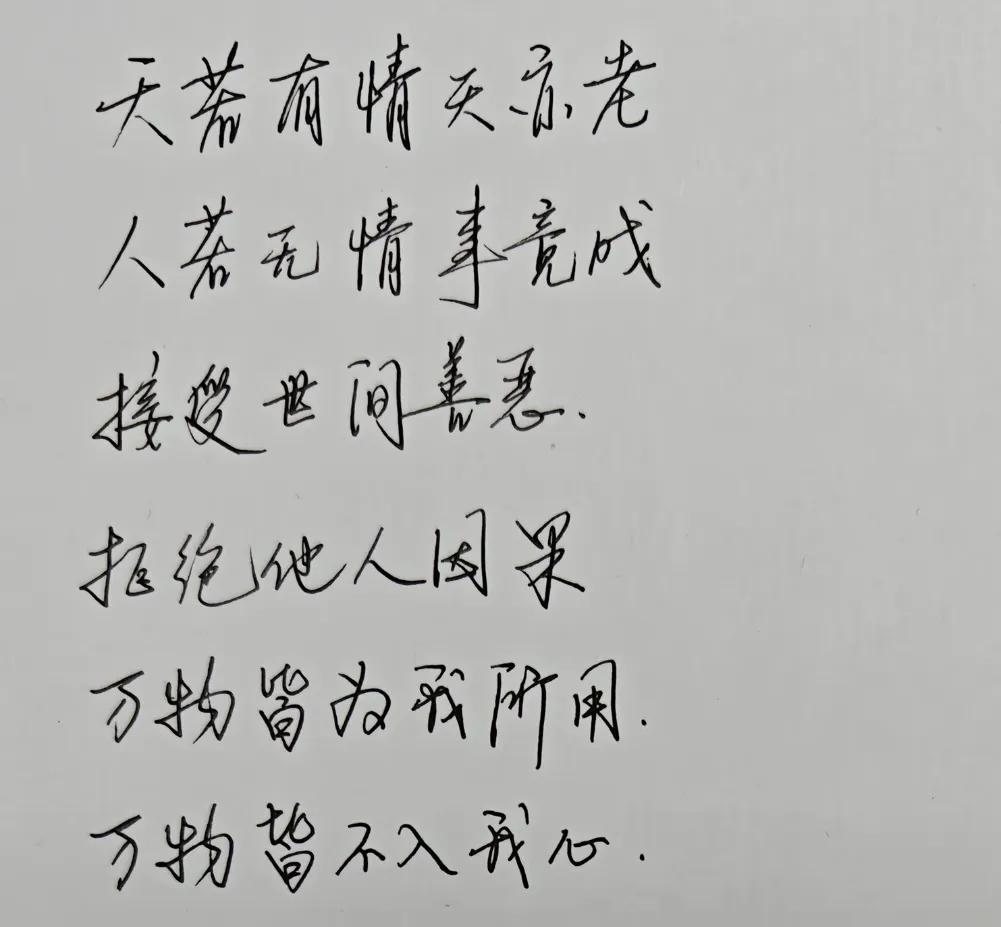 天若有情天亦老
人若无情事竟成
接受世间善恶.
拒绝他人因果
万物皆为我所用.
万物皆不入我心.